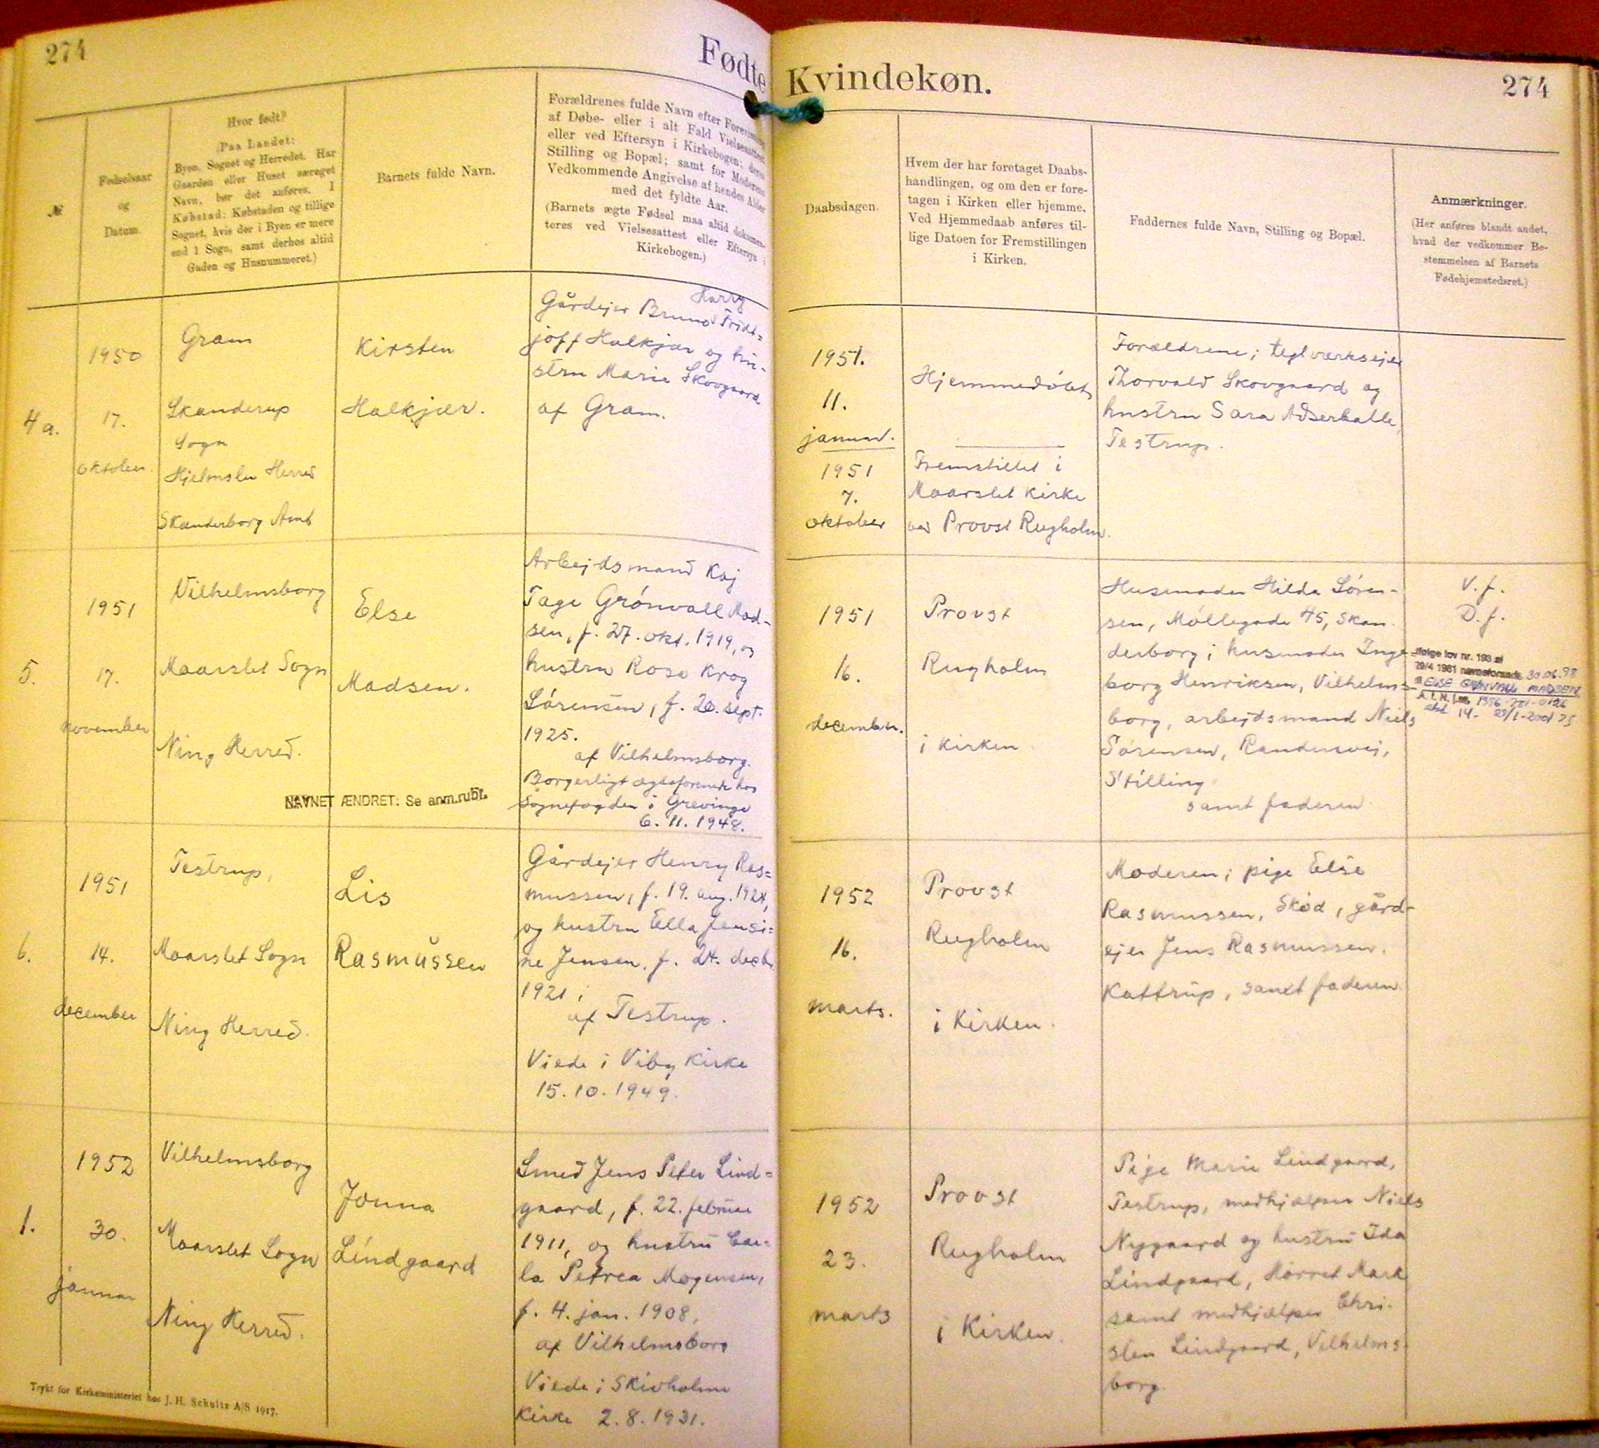 274
Fødte
Kvindekøn.
274
№
Fødselsaar
og
Datum.
Hvor født?
(Paa Landet:
Byen, Sognet og Herredet. Har
Gaarden eller Huset særeget
Navn, bør det anføres. I
Købstad: Købstaden og tillige
Sognet, hvis der i Byen er mere
end 1 Sogn, samt derhos altid
Gaden og Husnummeret.)
Barnets fulde Navn.
Forældrenes fulde Navn efter
af Døbe- eller i alt Fald Vielsesattest
eller ved Eftersyn i Kirkebogen; deres
Stilling og Bopæl; samt for Moderens
Vedkommende Angivelse af hendes Alder
med det fyldte Aar.
(Barnets ægte Fødsel maa altid dokumen-
teres ved Vielsesattest eller Eftersyn i
Kirkebogen.)
Daabsdagen.
Hvem der har foretaget Daabs-
handlingen, og om den er fore-
tagen i Kirken eller hjemme.
Ved Hjemmedaab anføres til-
lige Datoen for Fremstillingen
i Kirken.
Faddernes fulde Navn, Stilling og Bopæl.
Anmærkninger.
(Her anføres blandt andet,
hvad der vedkommer Be-
stemmelsen af Barnets
Fødehjemstedsret.)
4a.
1950
17.
oktober
Gram
Skanderup
Sogn
Hjelmslev Herred
Skanderborg Amt
Kirsten
Halkjær.
Harry
Gårdejer Bruno Fridt=
joff Halkjær og hu-
stru Marie Skovgaard
af Gram.
1951.
11.
januar.
1951
7.
oktober
Hjemmedøbt
Fremstillet i
Maarslet Kirke
ved Provst Rugholm.
Forældrene; teglværksejer
Thorvald Skovgaard og
hustru Sara Adserballe,
Testrup.
5.
1951
17.
november
Vilhelmsborg
Maarslet Sogn
Ning Herred.
Else
Madsen.
NAVNET ÆNDRET: Se anm.rubr.
Arbejdsmand Kaj
Tage Grönvall Mad-
sen, f. 27. okt. 1919, og
hustru Rosa Krog
Sörensen, f. 20. sept.
1925.
af Vilhelmsborg.
Borgerligt ægteforenede hos
Sognefogden i Grevinge
6. 11. 1948.
1951
16.
december.
Provst
Rugholm
i Kirken.
Husmoder Hilda Sören-
sen, Möllegade 45, Skan-
derborg; husmoder Inge-
borg Henriksen, Vilhelms=
borg, arbejdsmand Niels
Sörensen, Randersvej,
Stilling
samt faderen.
V.f.
D.f.
Ifølge lov nr. 193 af
29/4 1981 navneforandr. 30.06.98
ELSE GRØNVALL MADSEN
6.
1951
14.
december
Testrup,
Maarslet Sogn
Ning Herred.
Lis
Rasmussen
Gårdejer Henry Ras=
mussen, f. 19. aug. 1924,
og hustru Ella Jensi=
ne Jensen, f. 24. decbr.
1921;
af Testrup.
Viede i Viby Kirke
15. 10. 1949.
1952
16.
marts.
Provst
Rugholm
i Kirken.
Moderen; pige Else
Rasmussen, Skød, gård-
ejer Jens Rasmussen.
Kattrup, samt faderen.
1.
1952
30.
januar
Vilhelmsborg
Maarslet Sogn
Ning Herred.
Jonna
Lindgaard
Smed Jens Peter Lind=
gaard, f. 22. februar
1911, og hustru Car=
la Petrea Mogensen,
f. 4. jan. 1908,
af Vilhelmsborg
Viede i Skivholme
Kirke 2. 8. 1931.
1952
23.
marts
Provst
Rugholm
i Kirken.
Pige Marie Lindgaard,
Testrup, medhjælper Niels
Nygaard og hustru Ida
Lindgaard, Hørret Mark
samt medhjælper Chri-
sten Lindgaard, Vilhelms-
borg.
Trykt for Kirkeministeriet hos J. H. Schultz A/S 1917.